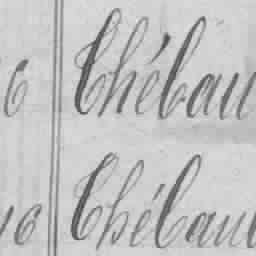 6 Thébau
16 Thébaul